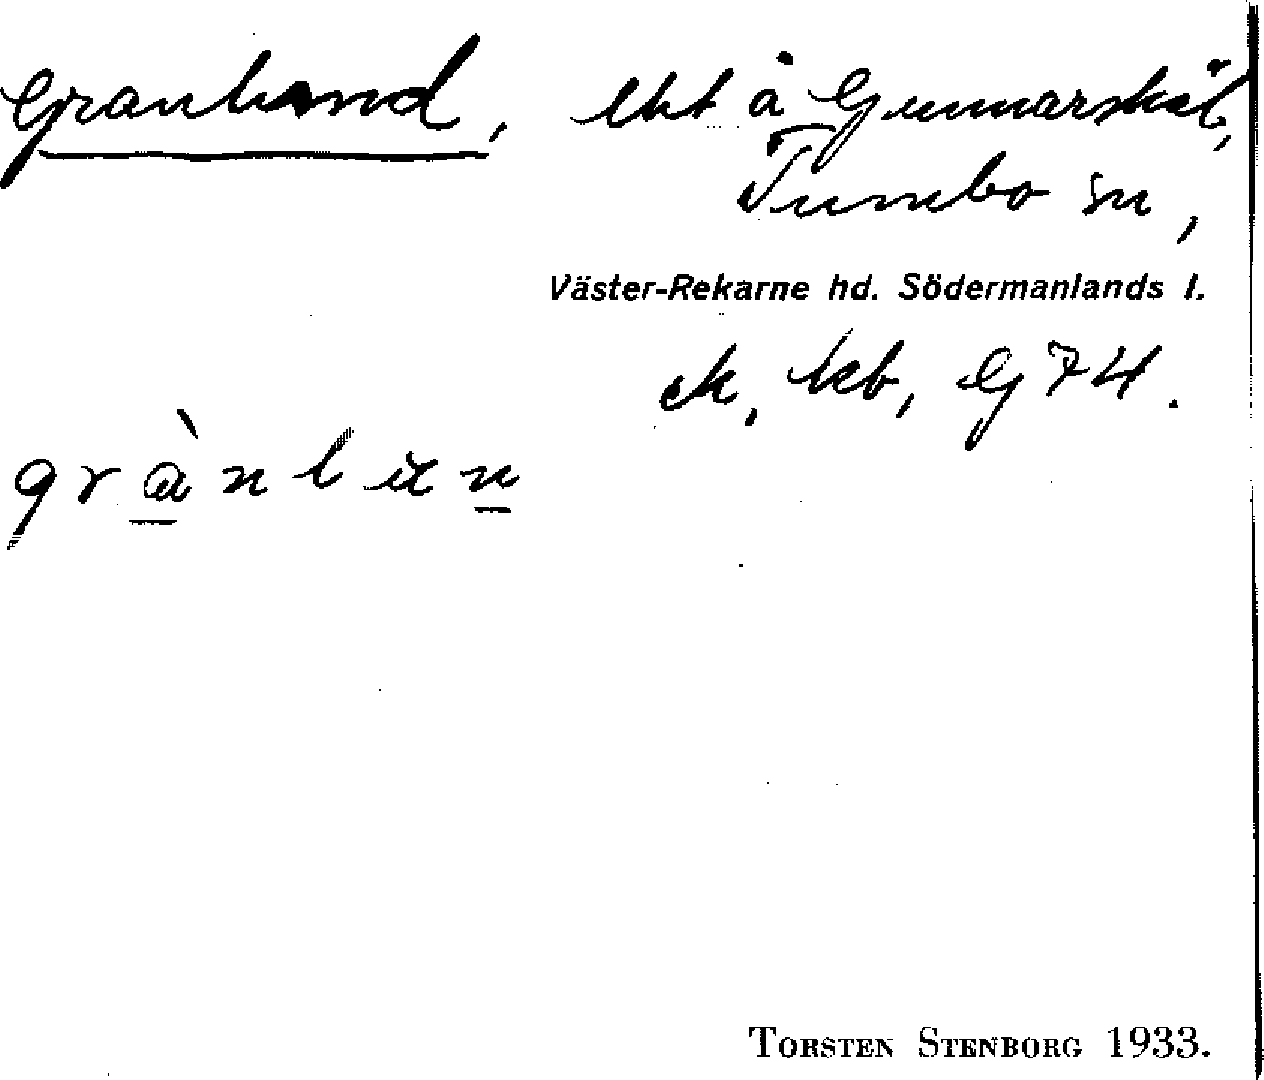 Granlund, lht å Gunnarskäl,
Tumbo sn,
Väster-Rekarne hd. Södermanlands l.
ek, kb, G 74.
grànlun
TORSTEN STENBORG 1933.